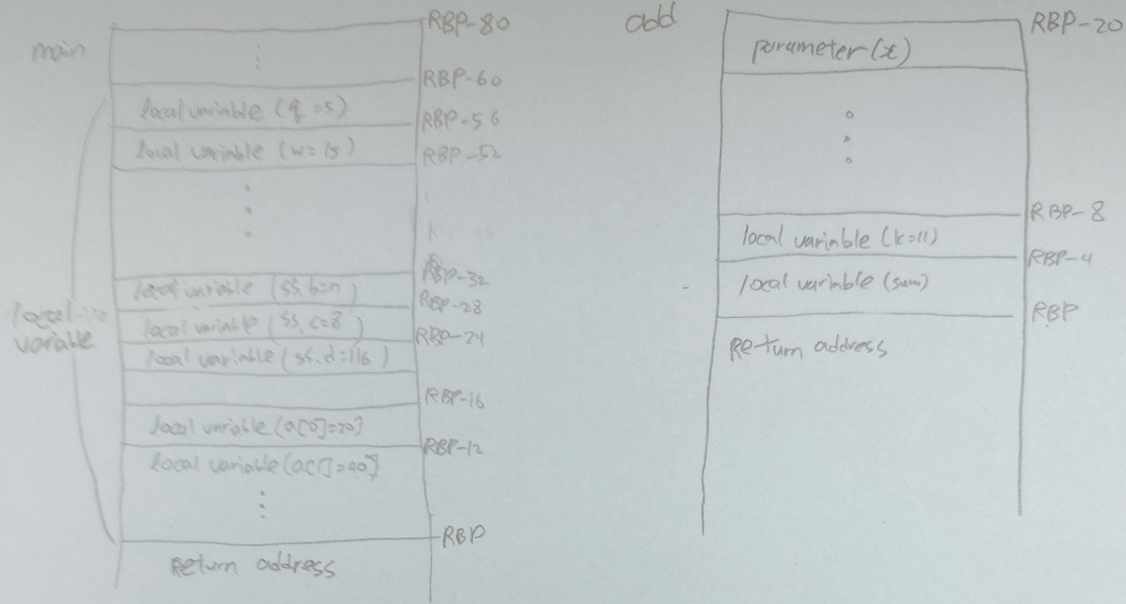 main
RBP-80
RBP-60
local variable (q=5)
RBP-56
local variable (w=15)
RBP-52
RBP-32
local variable (ss.b=n)
RBP-28
local variable (ss.c=8)
RBP-24
local variable (ss.d=116)
local
variable
RBP-16
local variable (a[0]=20)
RBP-12
local variable (a[1]=40)
RBP
Return address
add
RBP-20
parameter (x)
RBP-8
local variable (k=11)
RBP-4
local variable (sum)
RBP
Return address